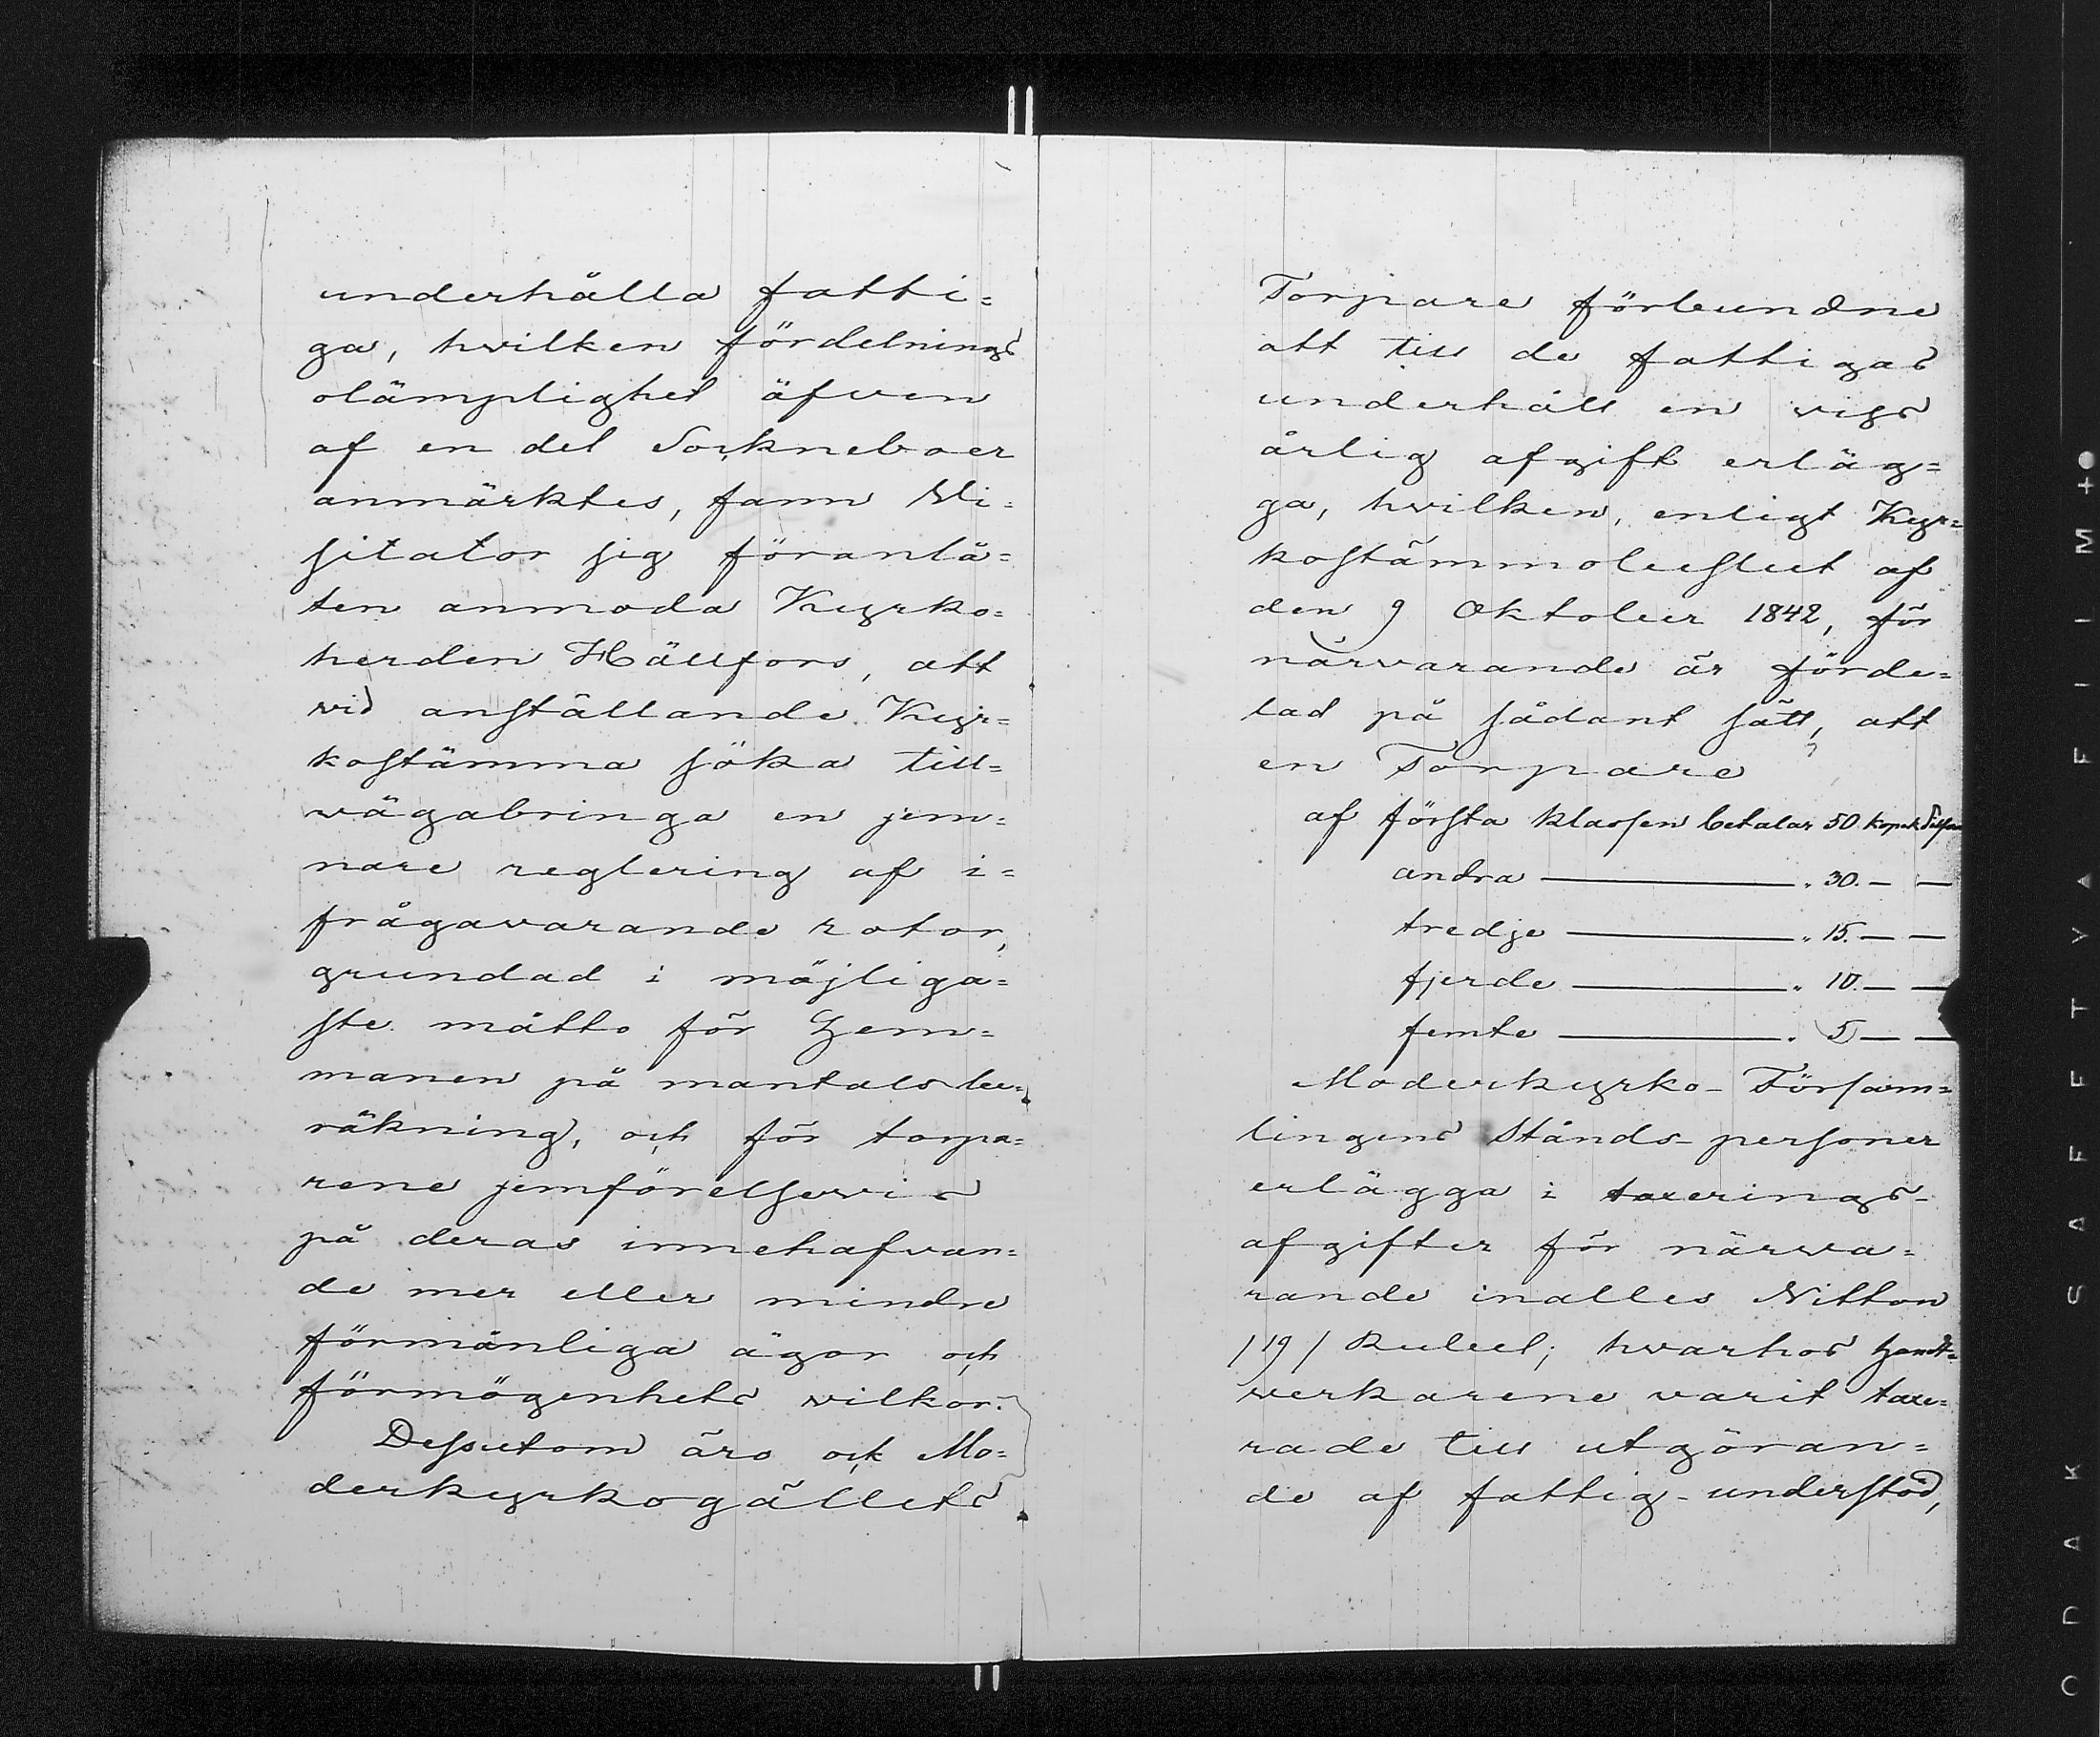 underhålla fatti=
ga, hvilken fördelnings
olämplighet äfven
af en del Sockneboer
anmärktes, fann Vi=
sitator sig föranlå=
ten anmoda Kyrko=
herden Hällfors, att
vid anställande Kyr=
kostämma söka till=
vägabringa en jem=
nare reglering af i=
frågavarande rotor,
grundad i möjliga=
ste måtto för Hem=
manen på mantals be=
räkning, och för torpa=
rene jemförelsevis
på deras innehafvan=
de mer eller mindre
förmånliga ägor och
förmögenhets vilkor.
Dessutom äro ock Mo=
derkyrkogällets
Torpare förbundne
att till de fattigas
underhåll en viss
årlig afgift erläg=
ga, hvilken, enligt Kyr=
kostämmobeslut af
den 9 Oktober 1842, för
närvarande är förde=
lad på sådant sätt, att
en Torpare
af första klassen betalar 50 kopek Silfver
andra ——— " 30. — —
tredje ——— " 15. — —
fjerde ——— " 10. — —
femte ——— " 5 — —
Moderkyrko-Församm=
lingens Stånds-personer
erlägga i taxerings-
afgifter för närva=
rande inalles Nitton
/19/ Rubel; hvarhos Handt=
verkarene varit taxe=
rade till utgöran=
de af fattig-understöd,
KODAK SAFETY FILM